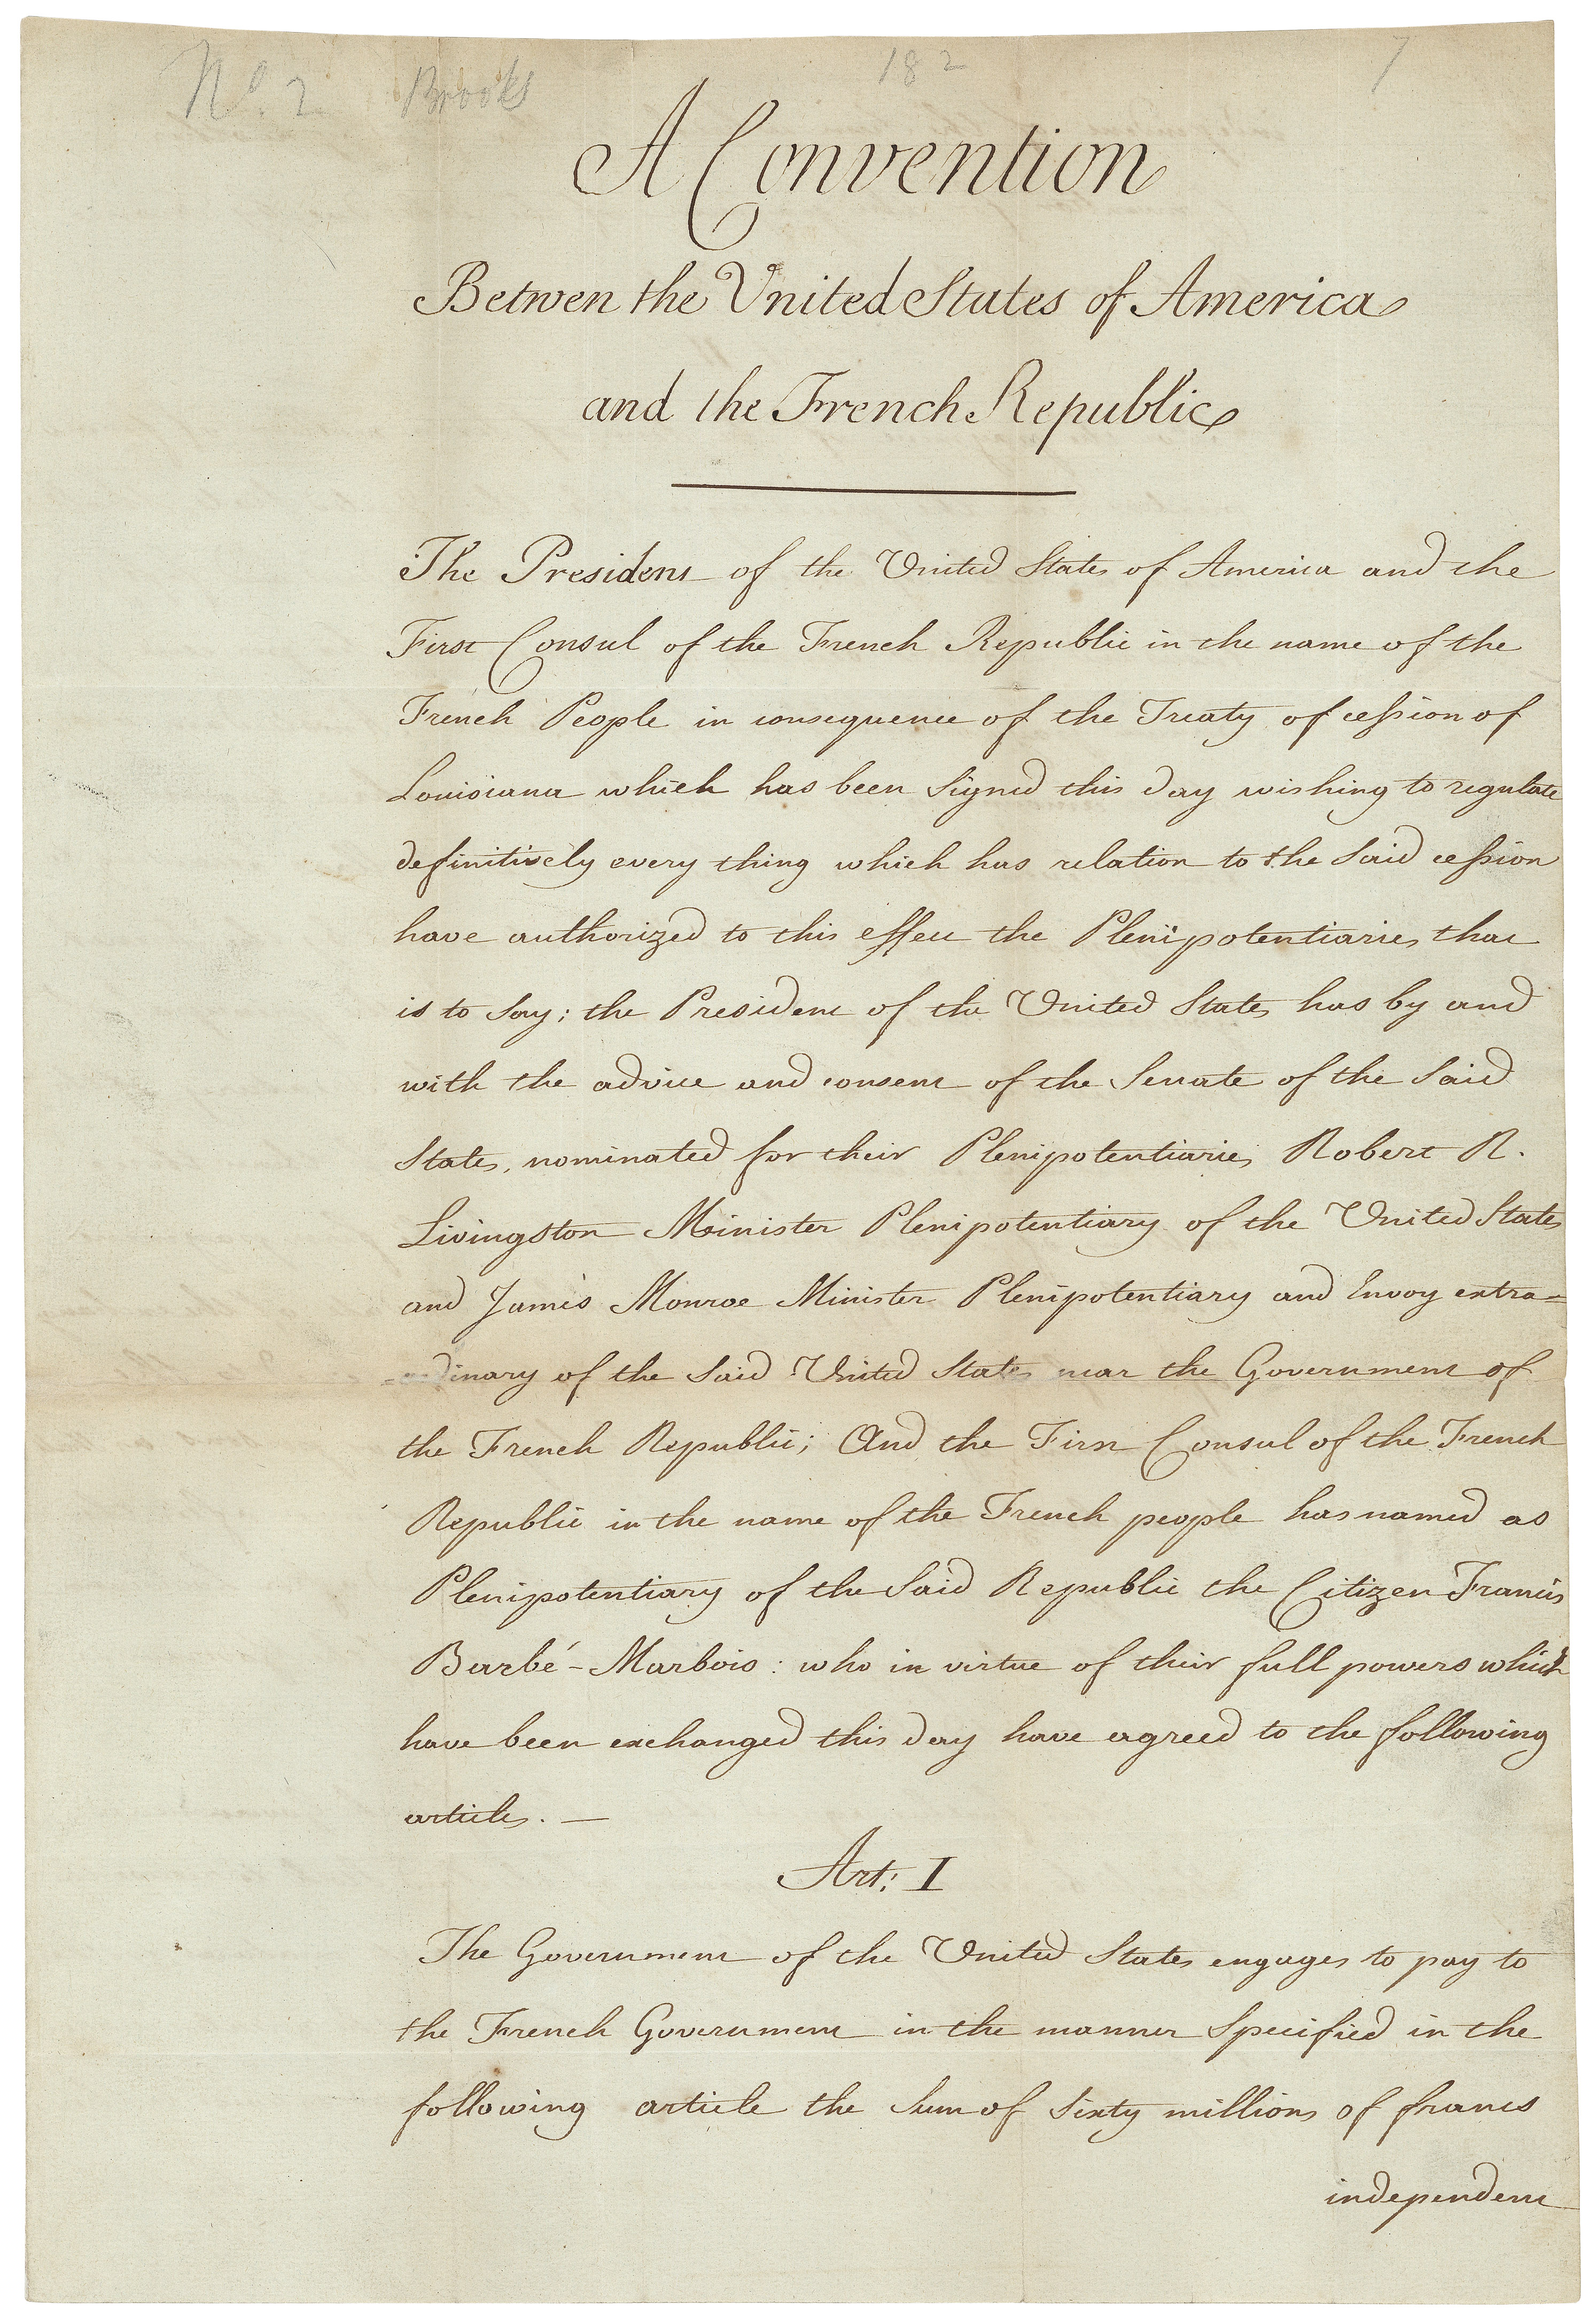 No. 2 Brooks 182 7
A Convention
Betwen the United States of America
and the French Republic
The President of the United States of America and the
First Consul of the French Republic in the name of the
French People in consequence of the Treaty of cession of
Louisiana which has been Signed this day wishing to regulate
definitively every thing which has relation to the Said cession
have authorized to this effect the Plenipotentiaries that
is to Say: the President of the United States has by and
with the advice and consent of the Senate of the Said
States, nominated for their Plenipotentiaries Robert R.
Livingston Minister Plenipotentiary of the United States
and James Monroe Minister Plenipotentiary and Envoy extra=
=ordinary of the Said United States near the Government of
the French Republic; And the First Consul of the French
Republic in the name of the French people has named as
Plenipotentiary of the Said Republic the Citizen Francis
Barbé-Marbois: who in virtue of their full powers which
have been exchanged this day have agreed to the following
articles. —
Art: I
The Government of the United States engages to pay to
the French Government in the manner Specified in the
following article the Sum of Sixty millions of francs
independent